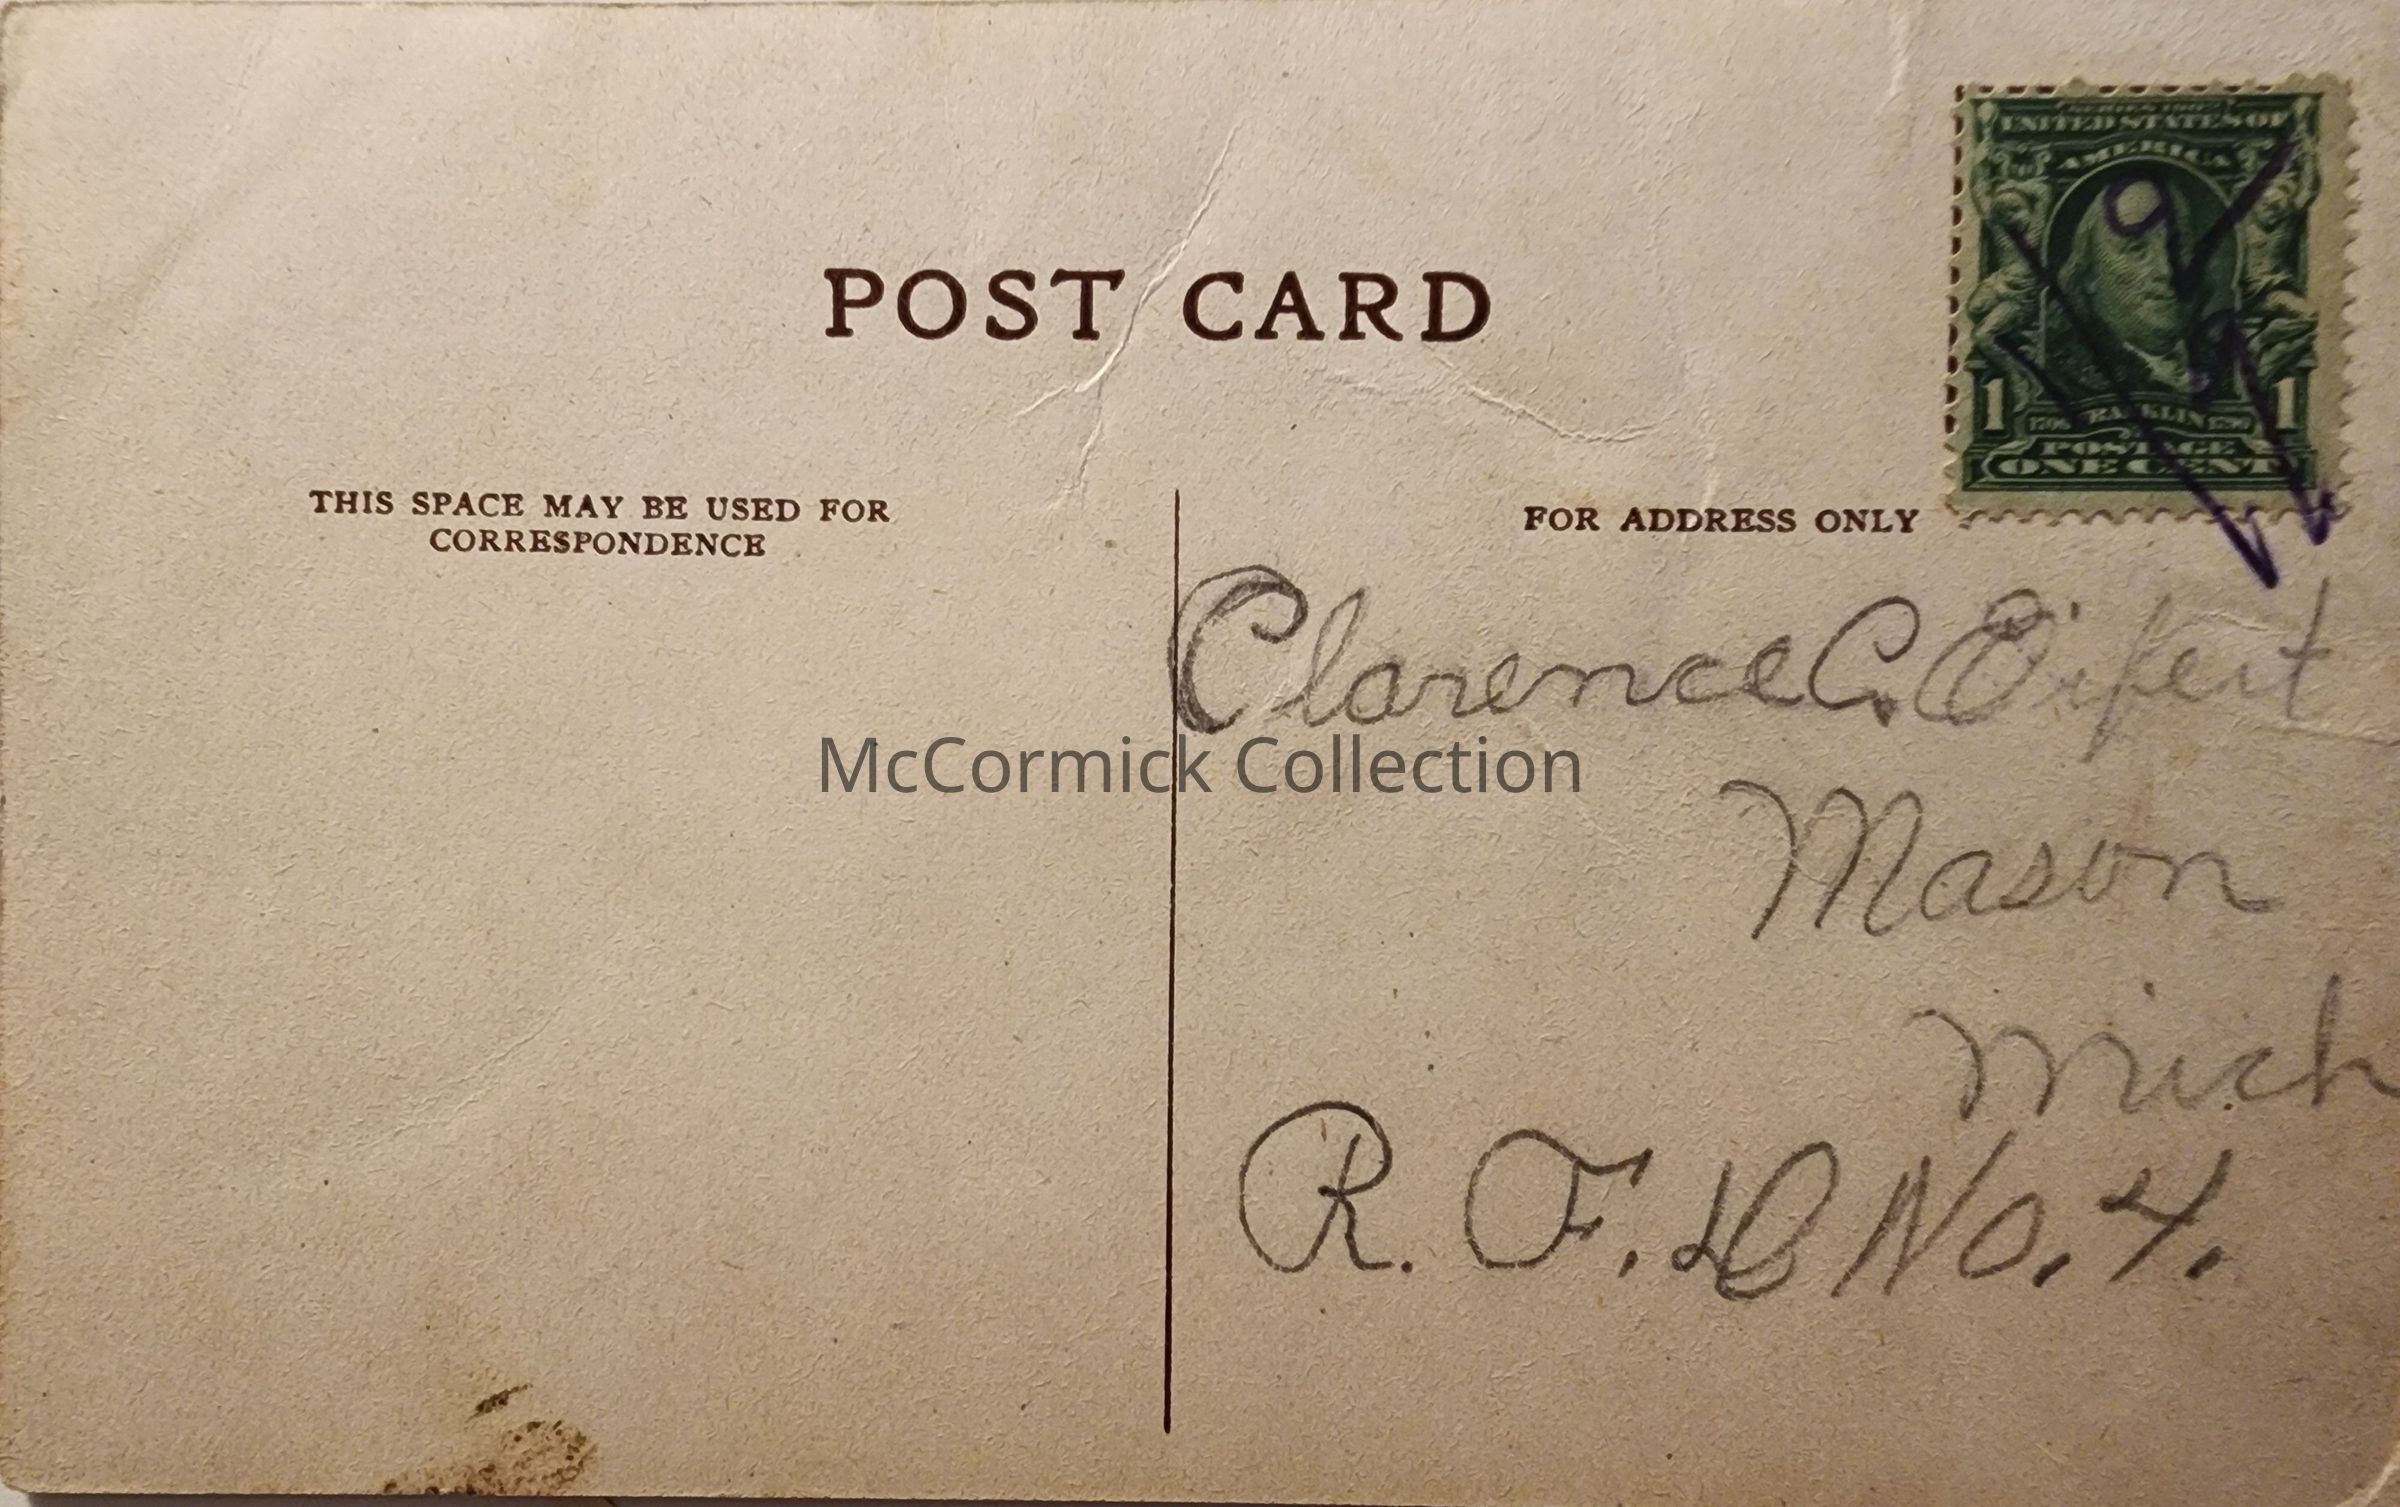 POST CARD
SERIES 1902
UNITED STATES OF
AMERICA
1 1
1706 FRANKLIN 1790
POSTAGE
ONE CENT
THIS SPACE MAY BE USED FOR
CORRESPONDENCE
FOR ADDRESS ONLY
Clarence C.
Mason
Mich
R. F. D No. 4.
McCormick Collection